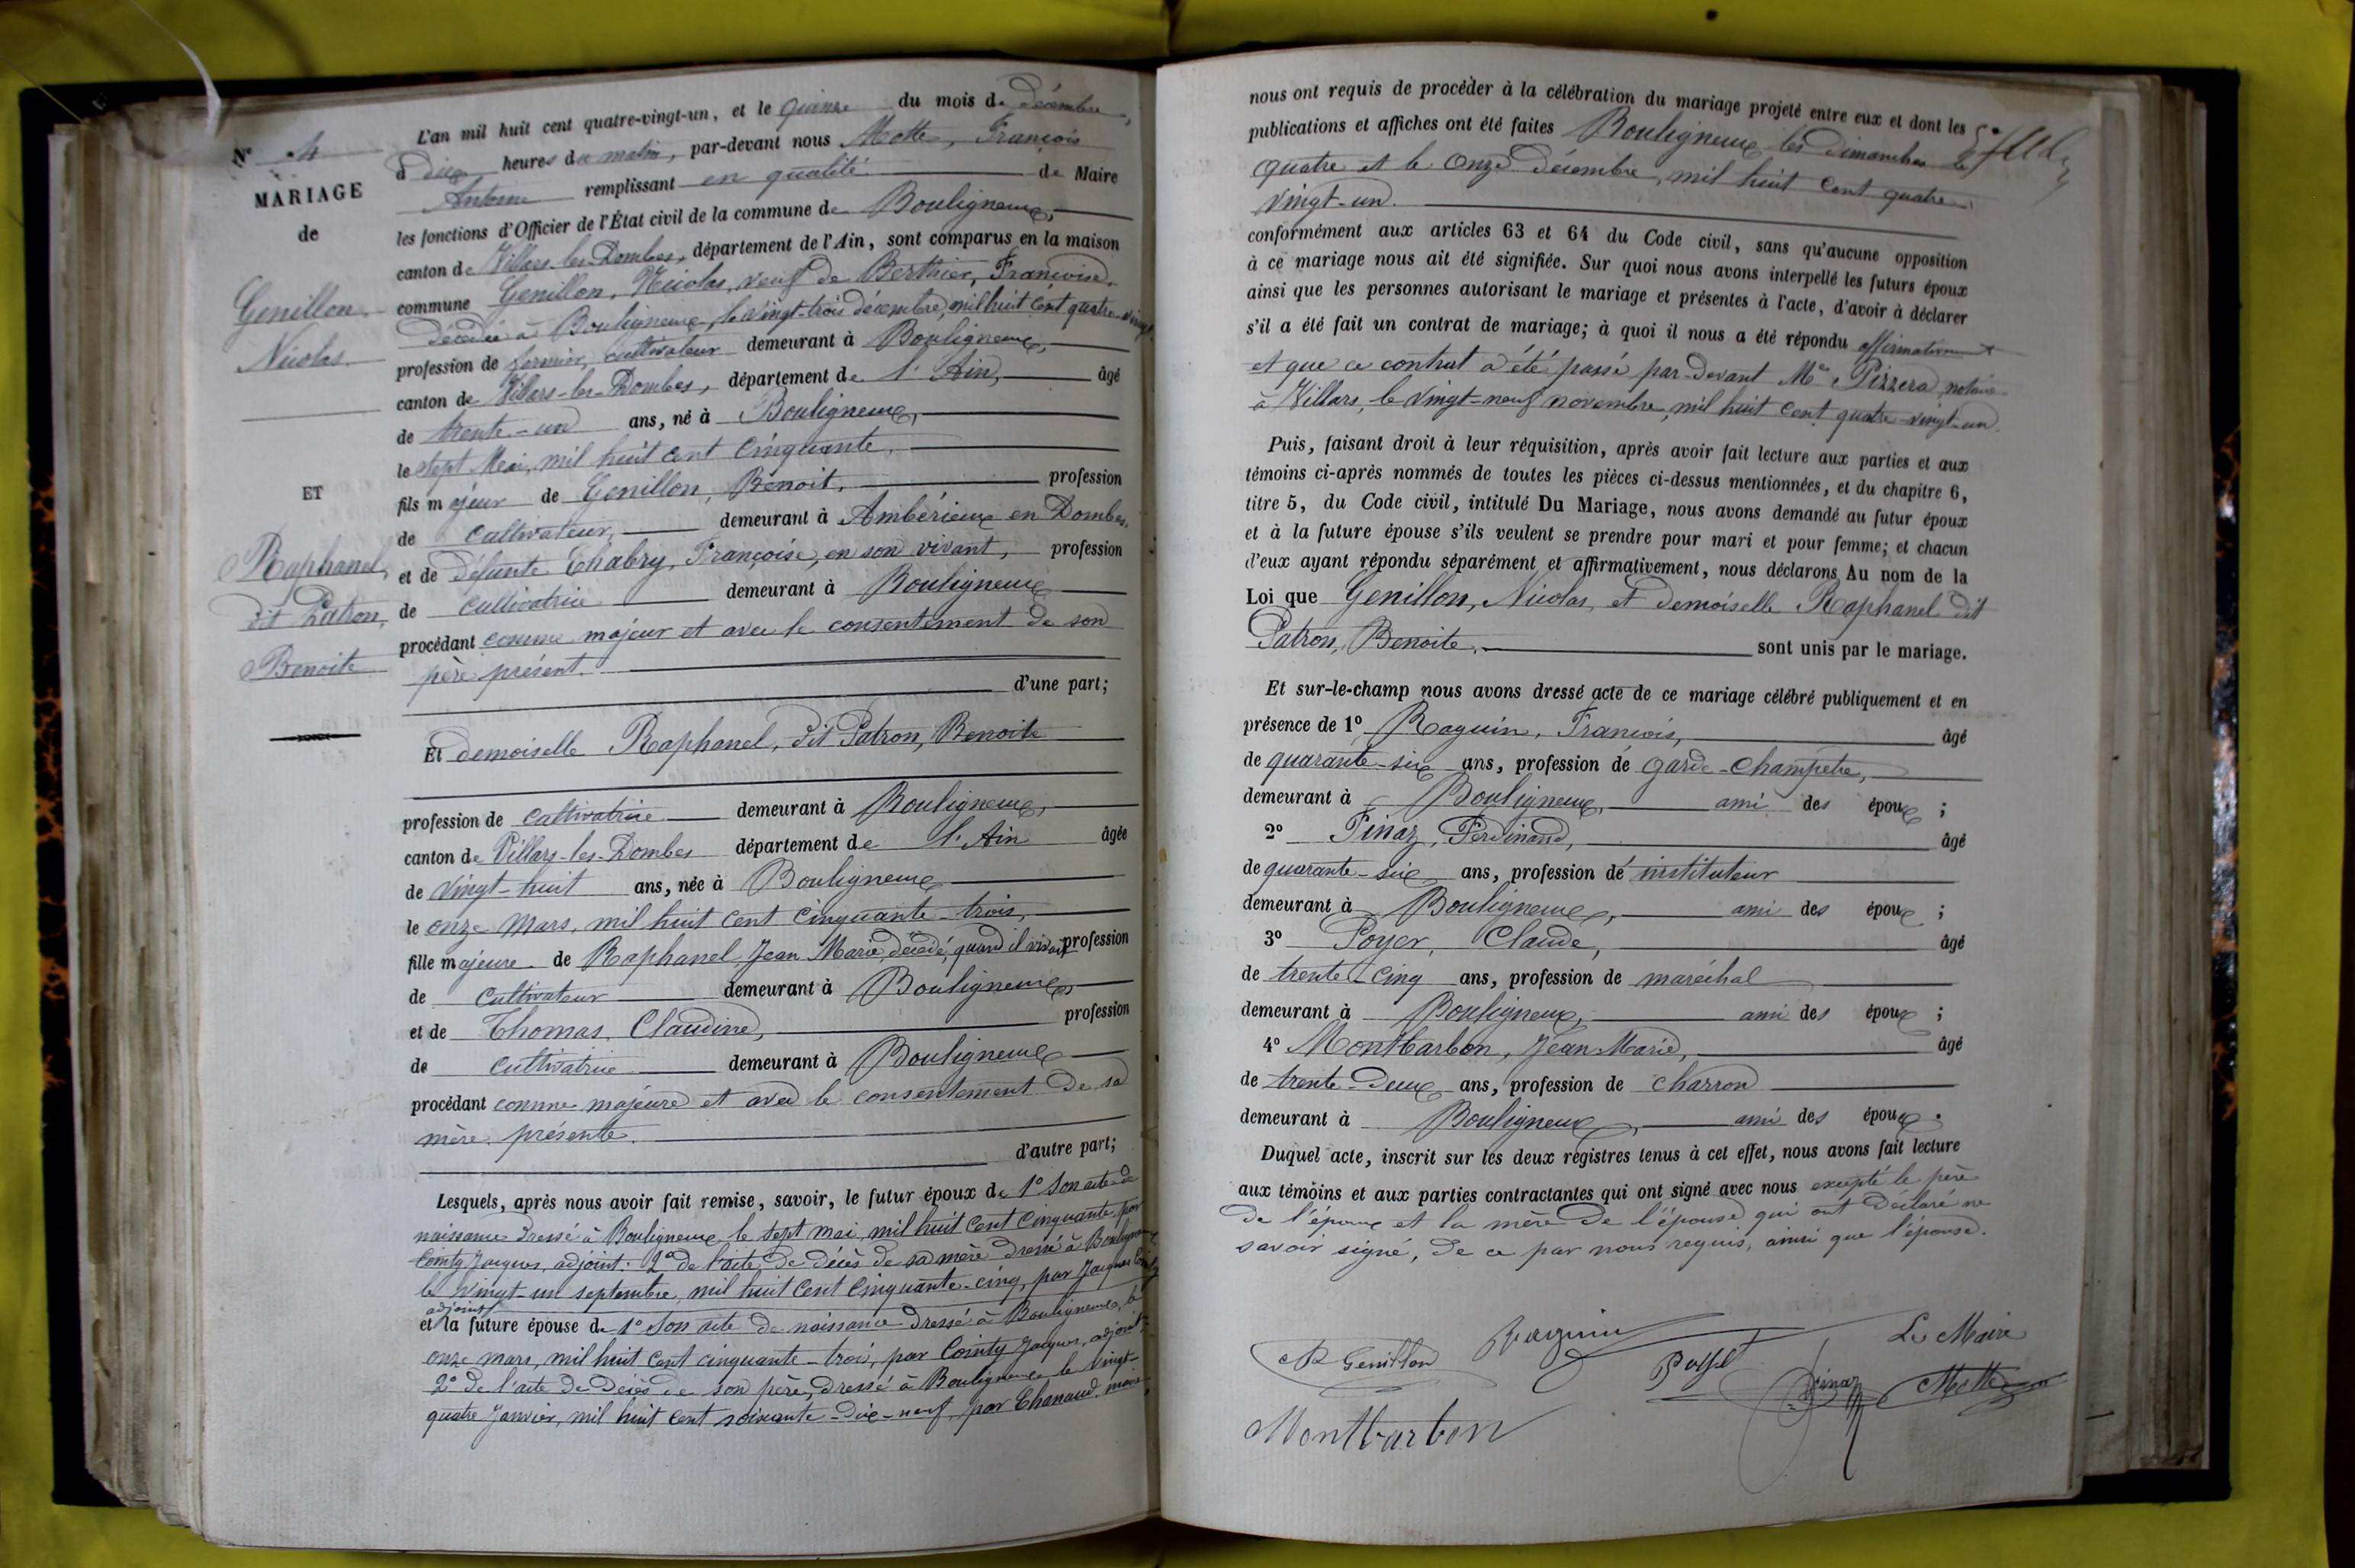 N° 4
MARIAGE
de
Genillon
Nicolas
ET
Raphanel,
dit Patron,
Benoite
L'an mil huit cent quatre-vingt-un, et le quinze du mois de décembre,
à dix heures du matin, par-devant nous Motte, François
Antoine remplissant en qualité de Maire
les fonctions d'Officier de l'État civil de la commune de Bouligneux,
canton de Villars-les-Dombes, département de l'Ain, sont comparus en la maison
commune Genillon, Nicolas, veuf de Berthier, Françoise,
décédée à Bouligneux, le vingt-trois décembre, mil huit cent quatre-vingt
profession de fermier, cultivateur demeurant à Bouligneux,
canton de Villars-les-Dombes, département de l'Ain, âgé
de trente-un ans, né à Bouligneux,
le sept Mai, mil huit cent cinquante,
fils majeur de Genillon, Benoit, profession
de cultivateur, demeurant à Ambérieux en Dombes,
et de défunte Chabry, Françoise, en son vivant, profession
de cultivatrice demeurant à Bouligneux
procédant comme majeur et avec le consentement de son
père présent.
d'une part;
Et demoiselle Raphanel, dit Patron, Benoite
profession de cultivatrice demeurant à Bouligneux,
canton de Villars-les-Dombes département de l'Ain âgée
de vingt-huit ans, née à Bouligneux
le onze Mars, mil huit cent cinquante-trois,
fille majeure de Raphanel Jean Marie, décédé, quand il vivait profession
de cultivateur demeurant à Bouligneux,
et de Thomas, Claudine, profession
de cultivatrice demeurant à Bouligneux
procédant comme majeure et avec le consentement de sa
mère présente.
d'autre part;
Lesquels, après nous avoir fait remise, savoir, le futur époux de 1° Son acte de
naissance dressé à Bouligneux le sept mai, mil huit cent cinquante par
Cointy Jacques, adjoint; 2° de l'acte de décès de sa mère dressé à Bouligneux
le vingt-un septembre, mil huit cent cinquante-cinq, par Jacques Cointy
adjoint
et la future épouse de 1° Son acte de naissance dressé à Bouligneux, le
onze mars, mil huit cent cinquante-trois, par Cointy Jacques, adjoint;
2° de l'acte de décès de son père, dressé à Bouligneux le vingt-
quatre Janvier, mil huit cent soixante-dix-neuf, par Chanaud, maire
nous ont requis de procéder à la célébration du mariage projeté entre eux et dont les
publications et affiches ont été faites Bouligneux les dimanches le
quatre et le onze décembre, mil huit cent quatre-
vingt-un.
conformément aux articles 63 et 64 du Code civil, sans qu'aucune opposition
à ce mariage nous ait été signifiée. Sur quoi nous avons interpellé les futurs époux
ainsi que les personnes autorisant le mariage et présentes à l'acte, d'avoir à déclarer
s'il a été fait un contrat de mariage; à quoi il nous a été répondu affirmativement
et que ce contrat a été passé par-devant Me Pizzera, notaire
à Villars, le vingt-neuf novembre, mil huit cent quatre-vingt-un.
Puis, faisant droit à leur réquisition, après avoir fait lecture aux parties et aux
témoins ci-après nommés de toutes les pièces ci-dessus mentionnées, et du chapitre 6,
titre 5, du Code civil, intitulé Du Mariage, nous avons demandé au futur époux
et à la future épouse s'ils veulent se prendre pour mari et pour femme; et chacun
d'eux ayant répondu séparément et affirmativement, nous déclarons Au nom de la
Loi que Genillon, Nicolas, et demoiselle Raphanel dit
Patron, Benoite, sont unis par le mariage.
Et sur-le-champ nous avons dressé acte de ce mariage célébré publiquement et en
présence de 1° Raguin, François, âgé
de quarante-six ans, profession de garde-champêtre,
demeurant à Bouligneux, ami des époux ;
2° Finaz, Ferdinand, âgé
de quarante-six ans, profession de instituteur
demeurant à Bouligneux, ami des époux ;
3° Poyer, Claude, âgé
de trente-cinq ans, profession de maréchal
demeurant à Bouligneux, ami des époux ;
4° Montbarbon, Jean-Marie, âgé
de trente-deux ans, profession de charron
demeurant à Bouligneux, ami des époux.
Duquel acte, inscrit sur les deux registres tenus à cet effet, nous avons fait lecture
aux témoins et aux parties contractantes qui ont signé avec nous excepté le père
de l'époux et la mère de l'épouse qui ont déclaré ne
savoir signé, de ce par nous requis, ainsi que l'épouse.
Genillon Raguin Le Maire
Finaz Motte
Montbarbon